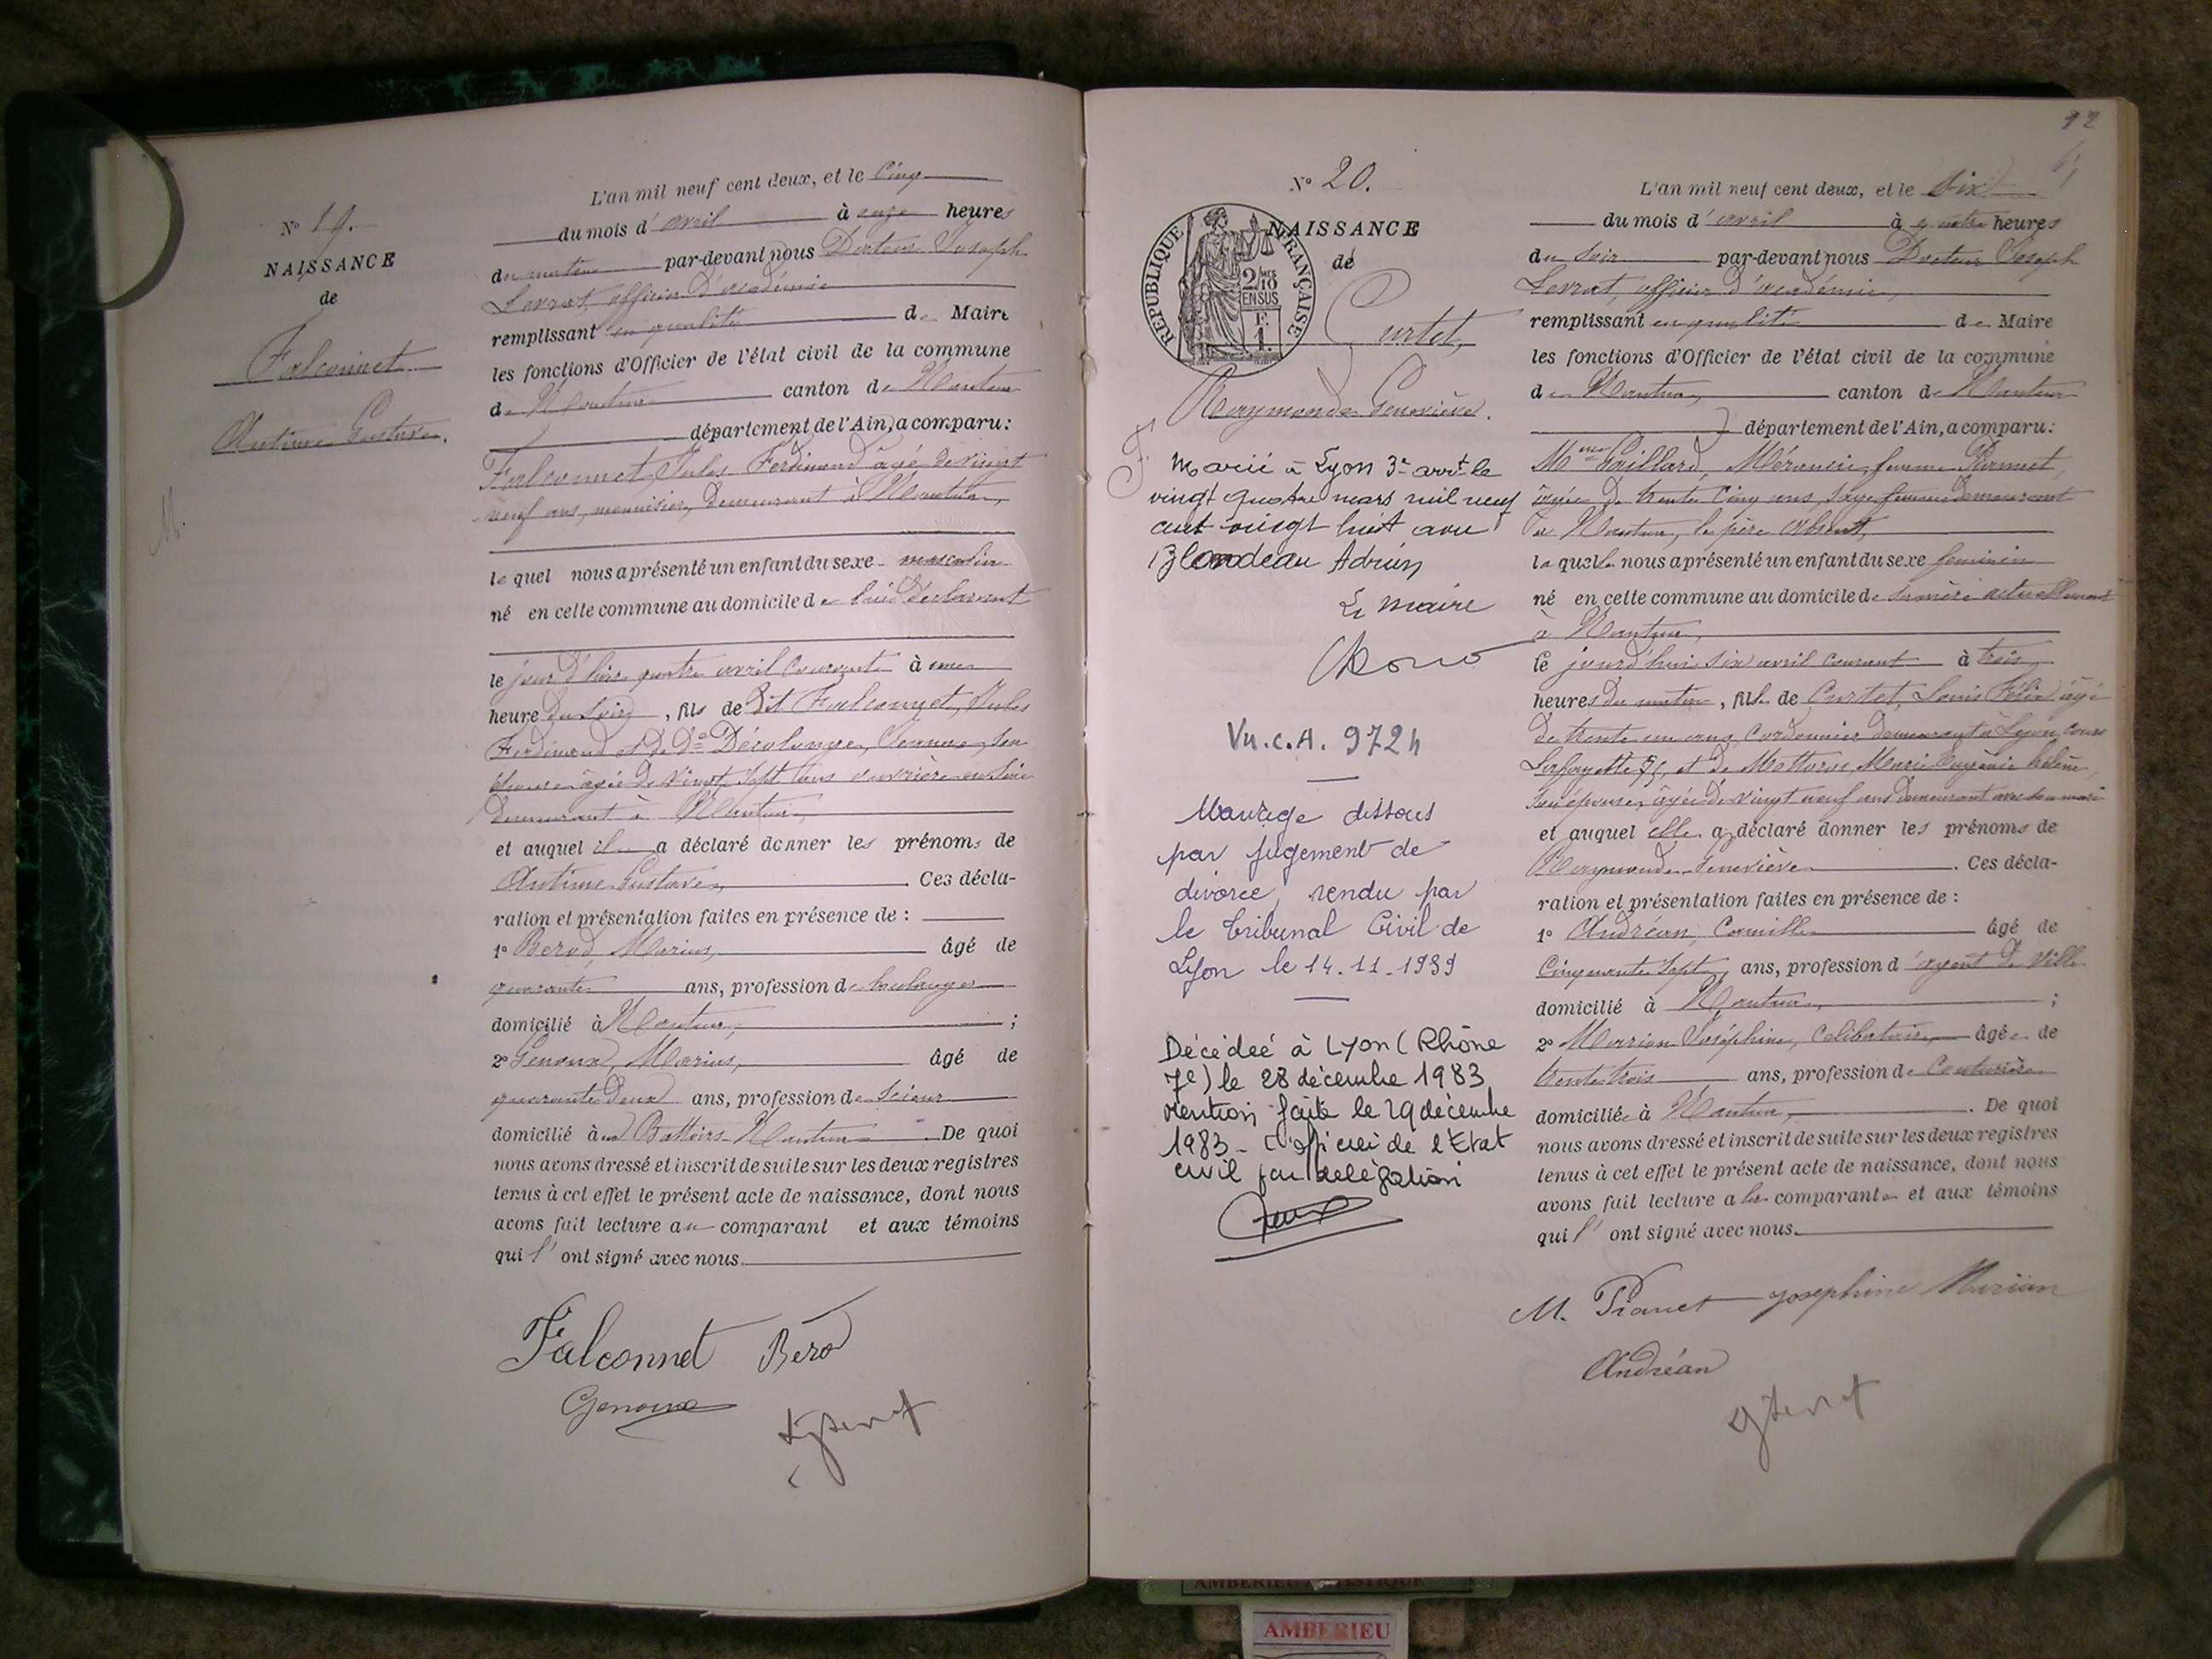 N° 19.
NAISSANCE
de
Falconnet
Antime Gustave.
M.
L'an mil neuf cent deux, et le Cinq
du mois d'avril à onze heures
du matin par-devant nous Docteur Joseph
Levrat, officier d'académie
remplissant en qualité de Maire
les fonctions d'Officier de l'état civil de la commune
de Nantua canton de Nantua
département de l'Ain, a comparu :
Falconnet, Jules Ferdinand âgé de vingt
neuf ans, menuisier, demeurant à Nantua,
lequel nous a présenté un enfant du sexe masculin
né en cette commune au domicile de lui déclarant
le jour d'hier quatre avril courant à une
heure du soir, fils de dit Falconnet, Jules
Ferdinand et de De Décolonge, son
épouse âgée de vingt sept ans ouvrière en soie
demeurant à Nantua
et auquel il a déclaré donner les prénoms de
Antime Gustave, Ces décla-
ration et présentation faites en présence de :
1° Berod, Marius, âgé de
quarante ans, profession de boulanger
domicilié à Nantua, ;
2° Genoux, Marius, âgé de
quarante deux ans, profession de scieur
domicilié aux Battoirs Nantua De quoi
nous avons dressé et inscrit de suite sur les deux registres
tenus à cet effet le présent acte de naissance, dont nous
avons fait lecture au comparant et aux témoins
qui l'ont signé avec nous.
Falconnet Bérod
Genoux
12
N° 20.
NAISSANCE
de
RÉPUBLIQUE FRANÇAISE
2/10
EN SUS
Curtet,
Raymonde Geneviève.
F.
Marié à Lyon 3e arrt le
vingt quatre mars mil neuf
cent vingt huit avec
Blondeau Adrien
Le maire
Vu.C.A. 9724
Mariage dissous
par jugement de
divorce, rendu par
le Tribunal Civil de
Lyon le 14.11.1939
Décédée à Lyon (Rhône
7e) le 28 décembre 1983
mention faite le 29 décembre
1983 - L'officier de l'Etat
civil par délégation
L'an mil neuf cent deux, et le six
du mois d'avril à quatre heures
du soir par-devant nous Docteur Joseph
Levrat, officier d'académie,
remplissant en qualité de Maire
les fonctions d'Officier de l'état civil de la commune
de Nantua, canton de Nantua
département de l'Ain, a comparu :
Mme Gaillard, femme Pianet,
âgée de trente cinq ans, sage femme demeurant
à Nantua, le père absent,
laquelle nous a présenté un enfant du sexe féminin
né en cette commune au domicile de sa mère actuellement
à Nantua,
le jourd'hui six avril courant à trois
heures du matin, fille de Curtet, Louis Félix âgé
de trente un ans, cordonnier demeurant à Lyon, cours
Lafayette 75, et de Marie Eugénie Hélène,
son épouse, âgée de vingt neuf ans demeurant avec son mari
et auquel elle a déclaré donner les prénoms de
Raymonde Geneviève. Ces décla-
ration et présentation faites en présence de :
1° Andréan, Camille âgé de
cinquante sept ans, profession d'agent de ville
domicilié à Nantua, ;
2° Marian Joséphine, célibataire, âgée de
trente trois ans, profession de couturière
domiciliée à Nantua, . De quoi
nous avons dressé et inscrit de suite sur les deux registres
tenus à cet effet le présent acte de naissance, dont nous
avons fait lecture a la comparante et aux témoins
qui l'ont signé avec nous.
M. Pianet Josephine Marian
Andréan
AMBERIEU